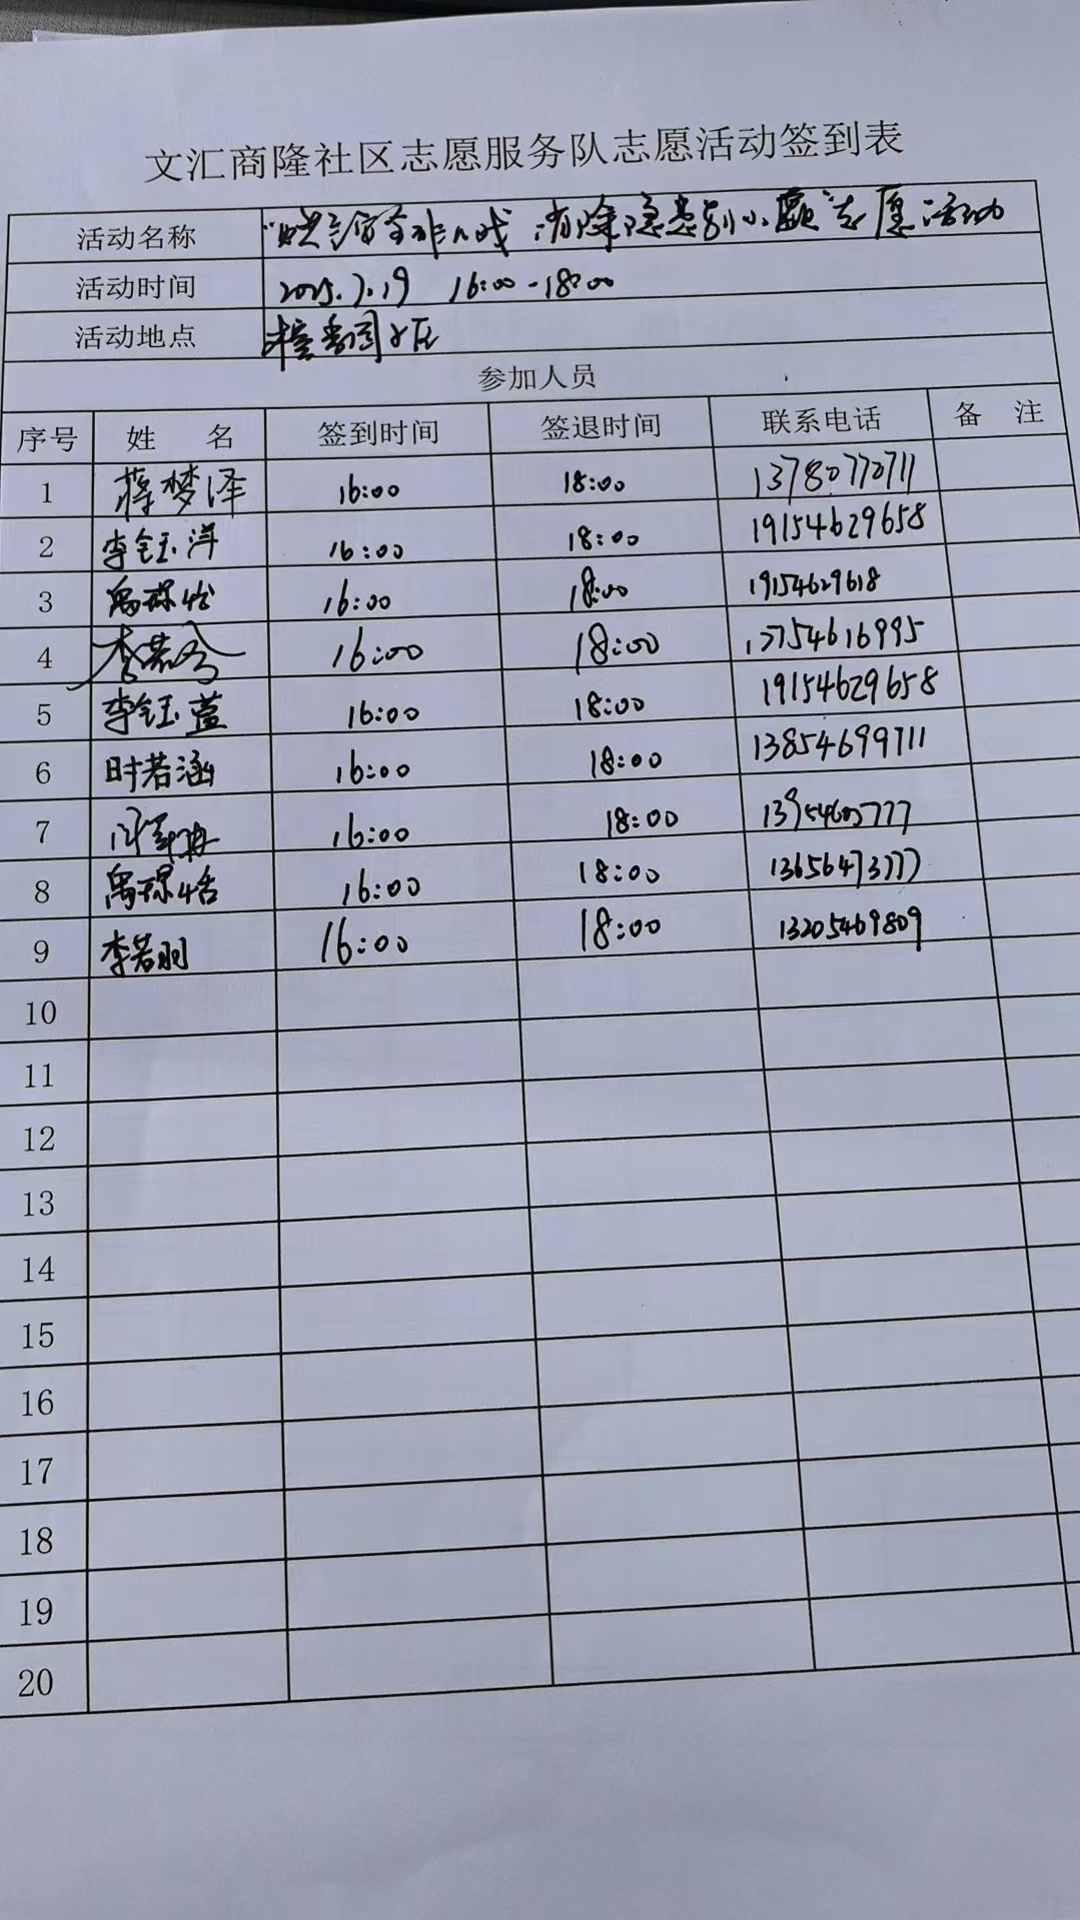 文汇商隆社区志愿服务队志愿活动签到表
活动名称 "燃气安全非儿戏 消除隐患别小觑"志愿活动
活动时间 2025.7.19 16:00-18:00
活动地点 檀香园 区
参加人员
序号 姓 名 签到时间 签退时间 联系电话 备 注
1 蒋梦泽 16:00 18:00 13780770711
2 李钰洋 16:00 18:00 19154629658
3 禹琛悦 16:00 18:00 19154629618
4 李若兮 16:00 18:00 13754616995
5 李钰萱 16:00 18:00 19154629658
6 时若涵 16:00 18:00 13854699711
7 16:00 18:00
8 禹琛恬 16:00 18:00 13656473777
9 李若羽 16:00 18:00 13205469809
10
11
12
13
14
15
16
17
18
19
20